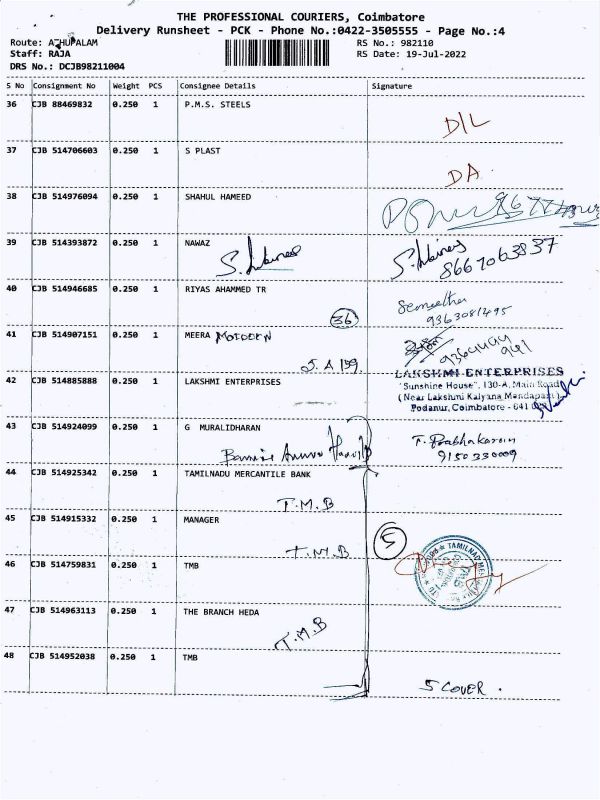 THE PROFESSIONAL COURIERS, Coimbatore
Delivery Runsheet - PCK - Phone No.:0422-3505555 - Page No.:4
Route: ATHUPALAM RS No.: 982110
Staff: RAJA RS Date: 19-Jul-2022
DRS No.: DCJB98211004
S No Consignment No Weight PCS Consignee Details Signature
36 CJB 88469832 0.250 1 P.M.S. STEELS
D/L
37 CJB 514706603 0.250 1 S PLAST
DA
38 CJB 514976094 0.250 1 SHAHUL HAMEED
39 CJB 514393872 0.250 1 NAWAZ
8667063837
40 CJB 514946685 0.250 1 RIYAS AHAMMED TR
36
9363081495
41 CJB 514907151 0.250 1 MEERA MOIDEEN
S.A 199.
LAKSHMI ENTERPRISES
42 CJB 514885888 0.250 1 LAKSHMI ENTERPRISES
"Sunshine House", 130-A, Main Road
(Near Lakshmi Kalyana Mandapam)
Podanur, Coimbatore - 641 023
43 CJB 514924099 0.250 1 G MURALIDHARAN
T. Prabhakaran
9150330009
44 CJB 514925342 0.250 1 TAMILNADU MERCANTILE BANK
T.M.B
45 CJB 514915332 0.250 1 MANAGER
T.M.B
5
46 CJB 514759831 0.250 1 TMB
47 CJB 514963113 0.250 1 THE BRANCH HEDA
T.M.B
48 CJB 514952038 0.250 1 TMB
5 COVER.